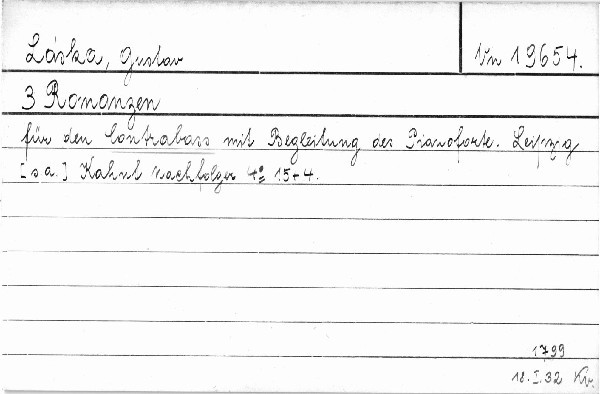 Láska, Gustav
Vn 19654.
3 Romanzen
für den Contrabass mit Begleitung des Pianoforte. Leipzig
[s a.] Kahnt Nachfolger 4º 15+4.
1799
18.I.32 Kr.